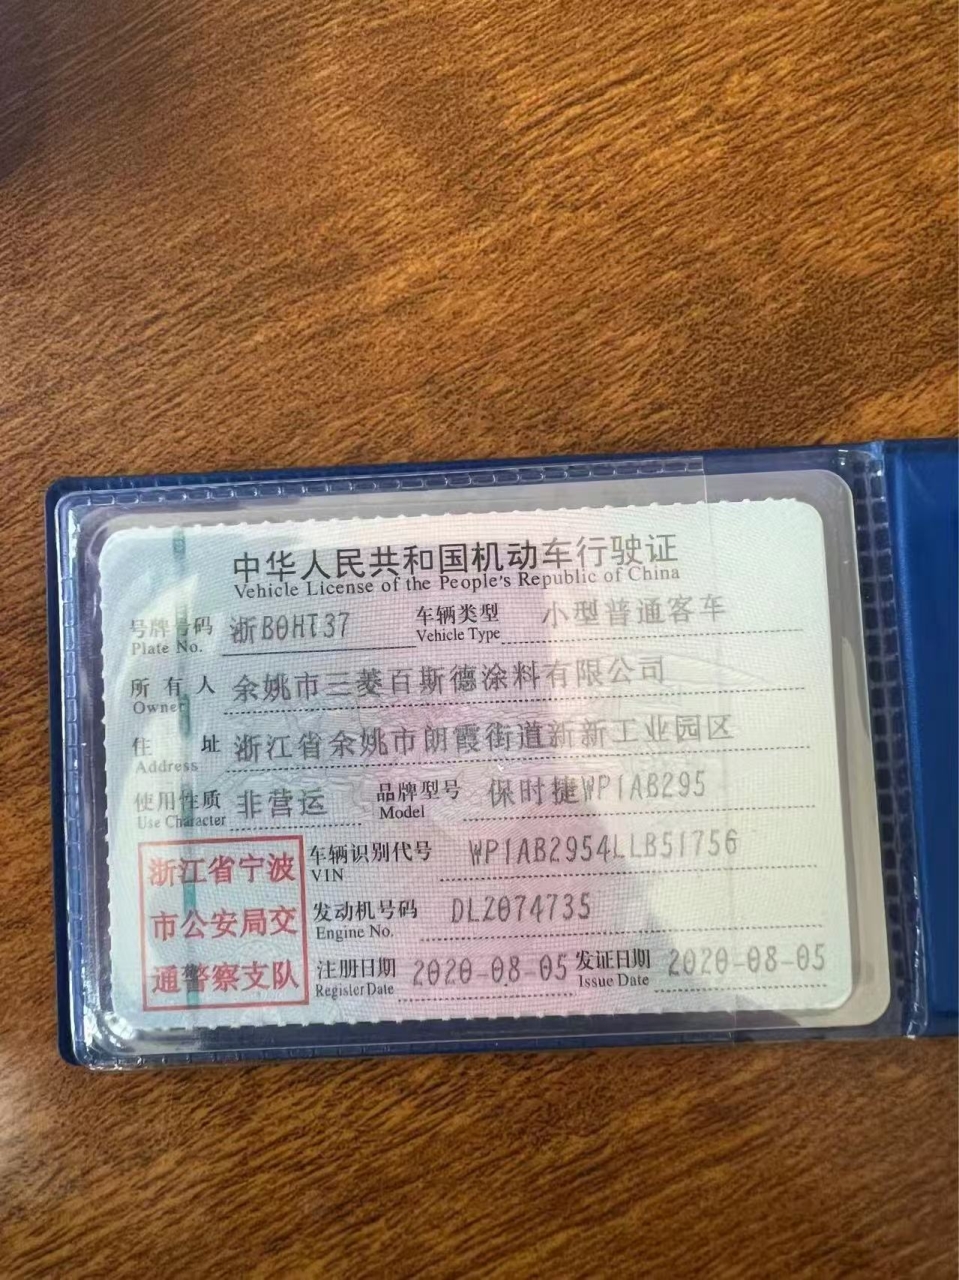 中华人民共和国机动车行驶证
Vehicle License of the People's Republic of China
号牌号码 浙B0HT37 车辆类型 小型普通客车
Plate No. Vehicle Type
所有人 余姚市三菱百斯德涂料有限公司
Owner
住址 浙江省余姚市朗霞街道新新工业园区
Address
使用性质 非营运 品牌型号 保时捷WP1AB295
Use Character Model
浙江省宁波
市公安局交
通警察支队
车辆识别代号 WP1AB2954LLB51756
VIN
发动机号码 DLZ074735
Engine No.
注册日期 2020-08-05 发证日期 2020-08-05
Register Date Issue Date